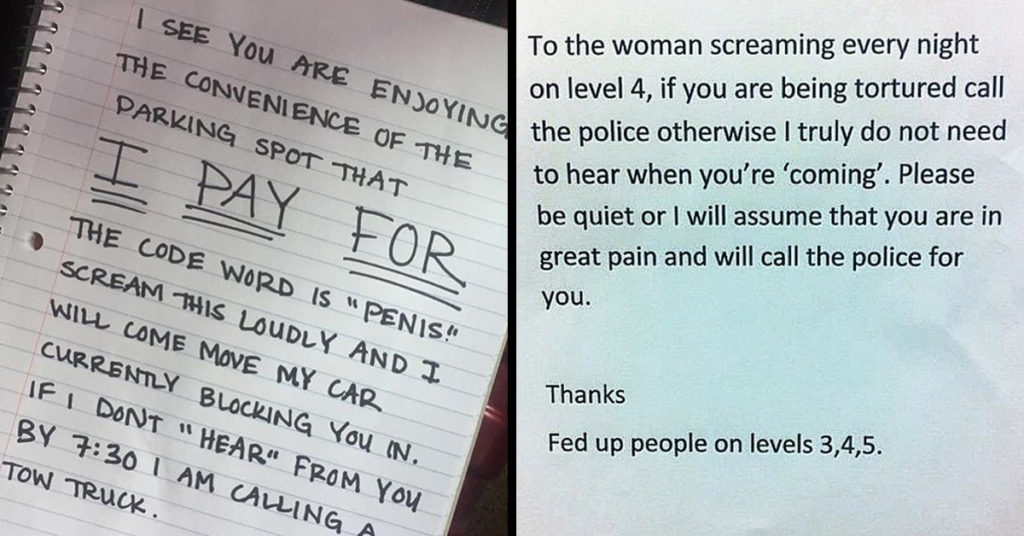 I SEE YOU ARE ENJOYING
THE CONVENIENCE OF THE
PARKING SPOT THAT
I PAY FOR
THE CODE WORD IS "PENIS."
SCREAM THIS LOUDLY AND I
WILL COME MOVE MY CAR
CURRENTLY BLOCKING YOU IN.
IF I DONT "HEAR" FROM YOU
BY 7:30 I AM CALLING A
TOW TRUCK.
To the woman screaming every night
on level 4, if you are being tortured call
the police otherwise I truly do not need
to hear when you're 'coming'. Please
be quiet or I will assume that you are in
great pain and will call the police for
you.
Thanks
Fed up people on levels 3,4,5.